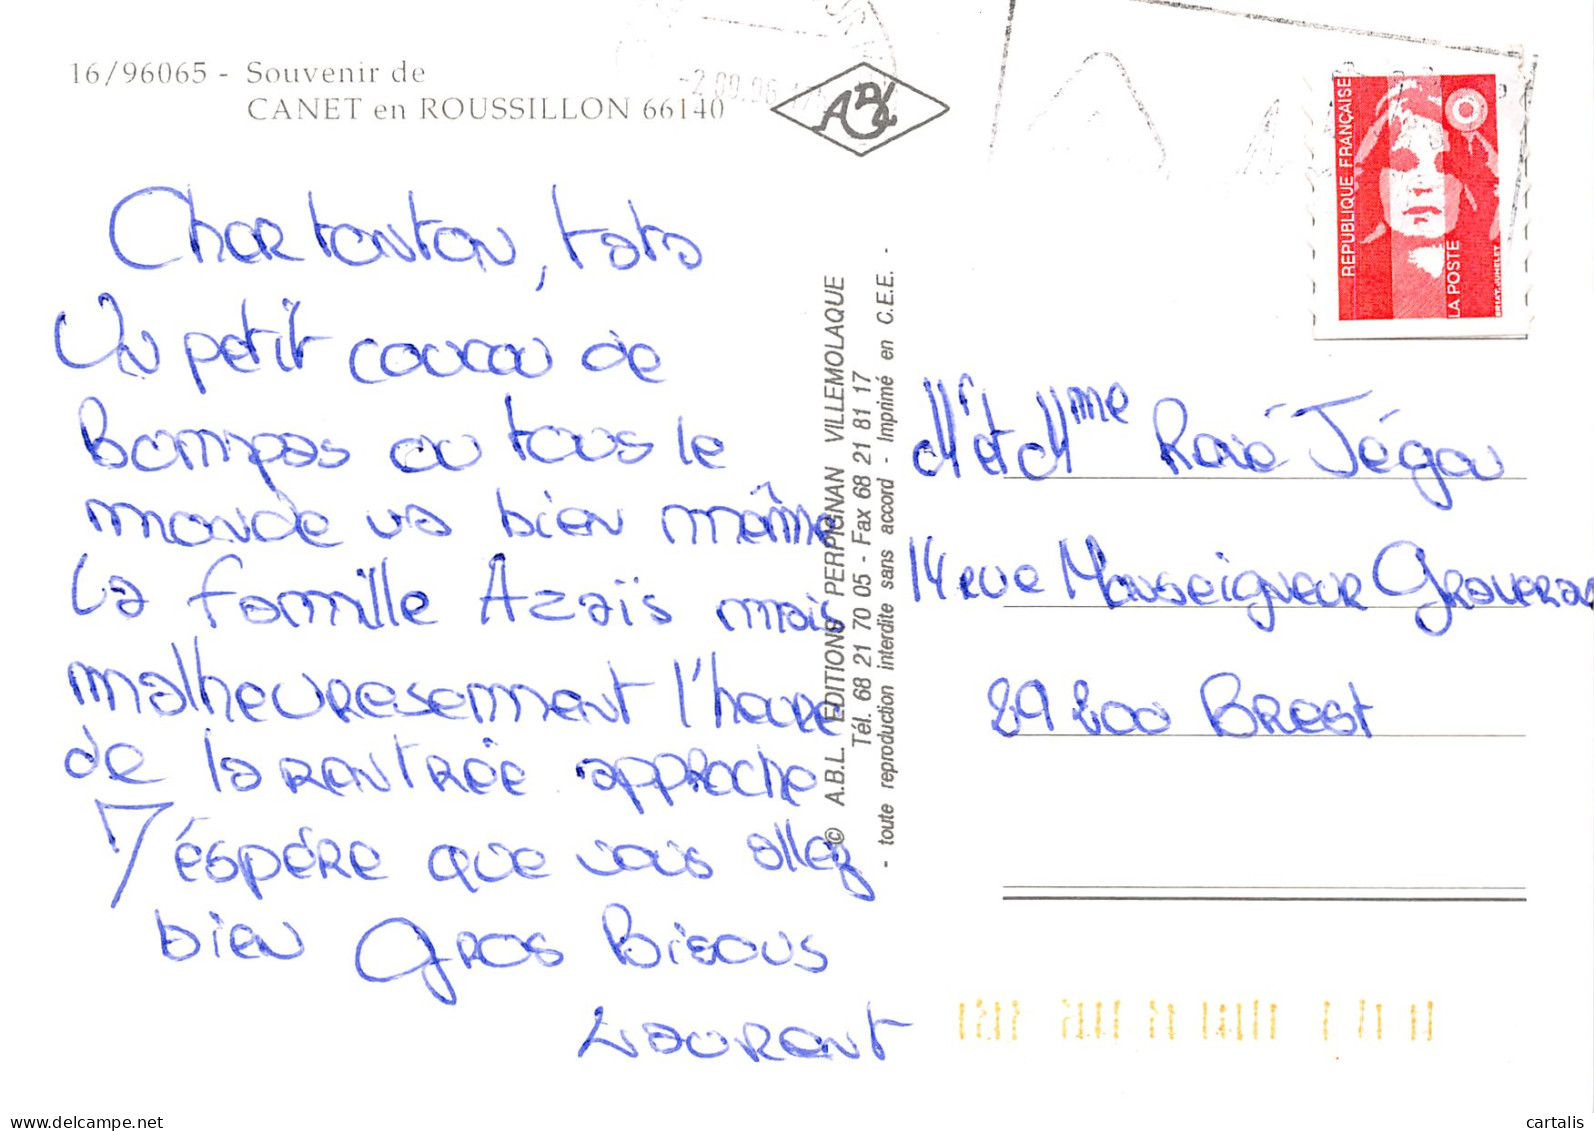 16/96065 - Souvenir de
CANET en ROUSSILLON 66140
ABL
RÉPUBLIQUE FRANÇAISE
LA POSTE
BRIAT-JUMELET
Cher tonton, tata
Un petit coucou de
Bompas ou tous le
monde va bien même
la famille Azaïs mais
malheureusement l'heure
de la rentrée approche
J'éspére que vous allez
bien Gros Bisous
Laurent
© A.B.L. EDITIONS PERPIGNAN VILLEMOLAQUE
Tél. 68 21 70 05 - Fax 68 21 81 17
- toute reproduction interdite sans accord - Imprimé en C.E.E. -
Mr et Mme René Jégou
14 rue Monseigneur Graveran
29200 Brest
www.delcampe.net
cartalis